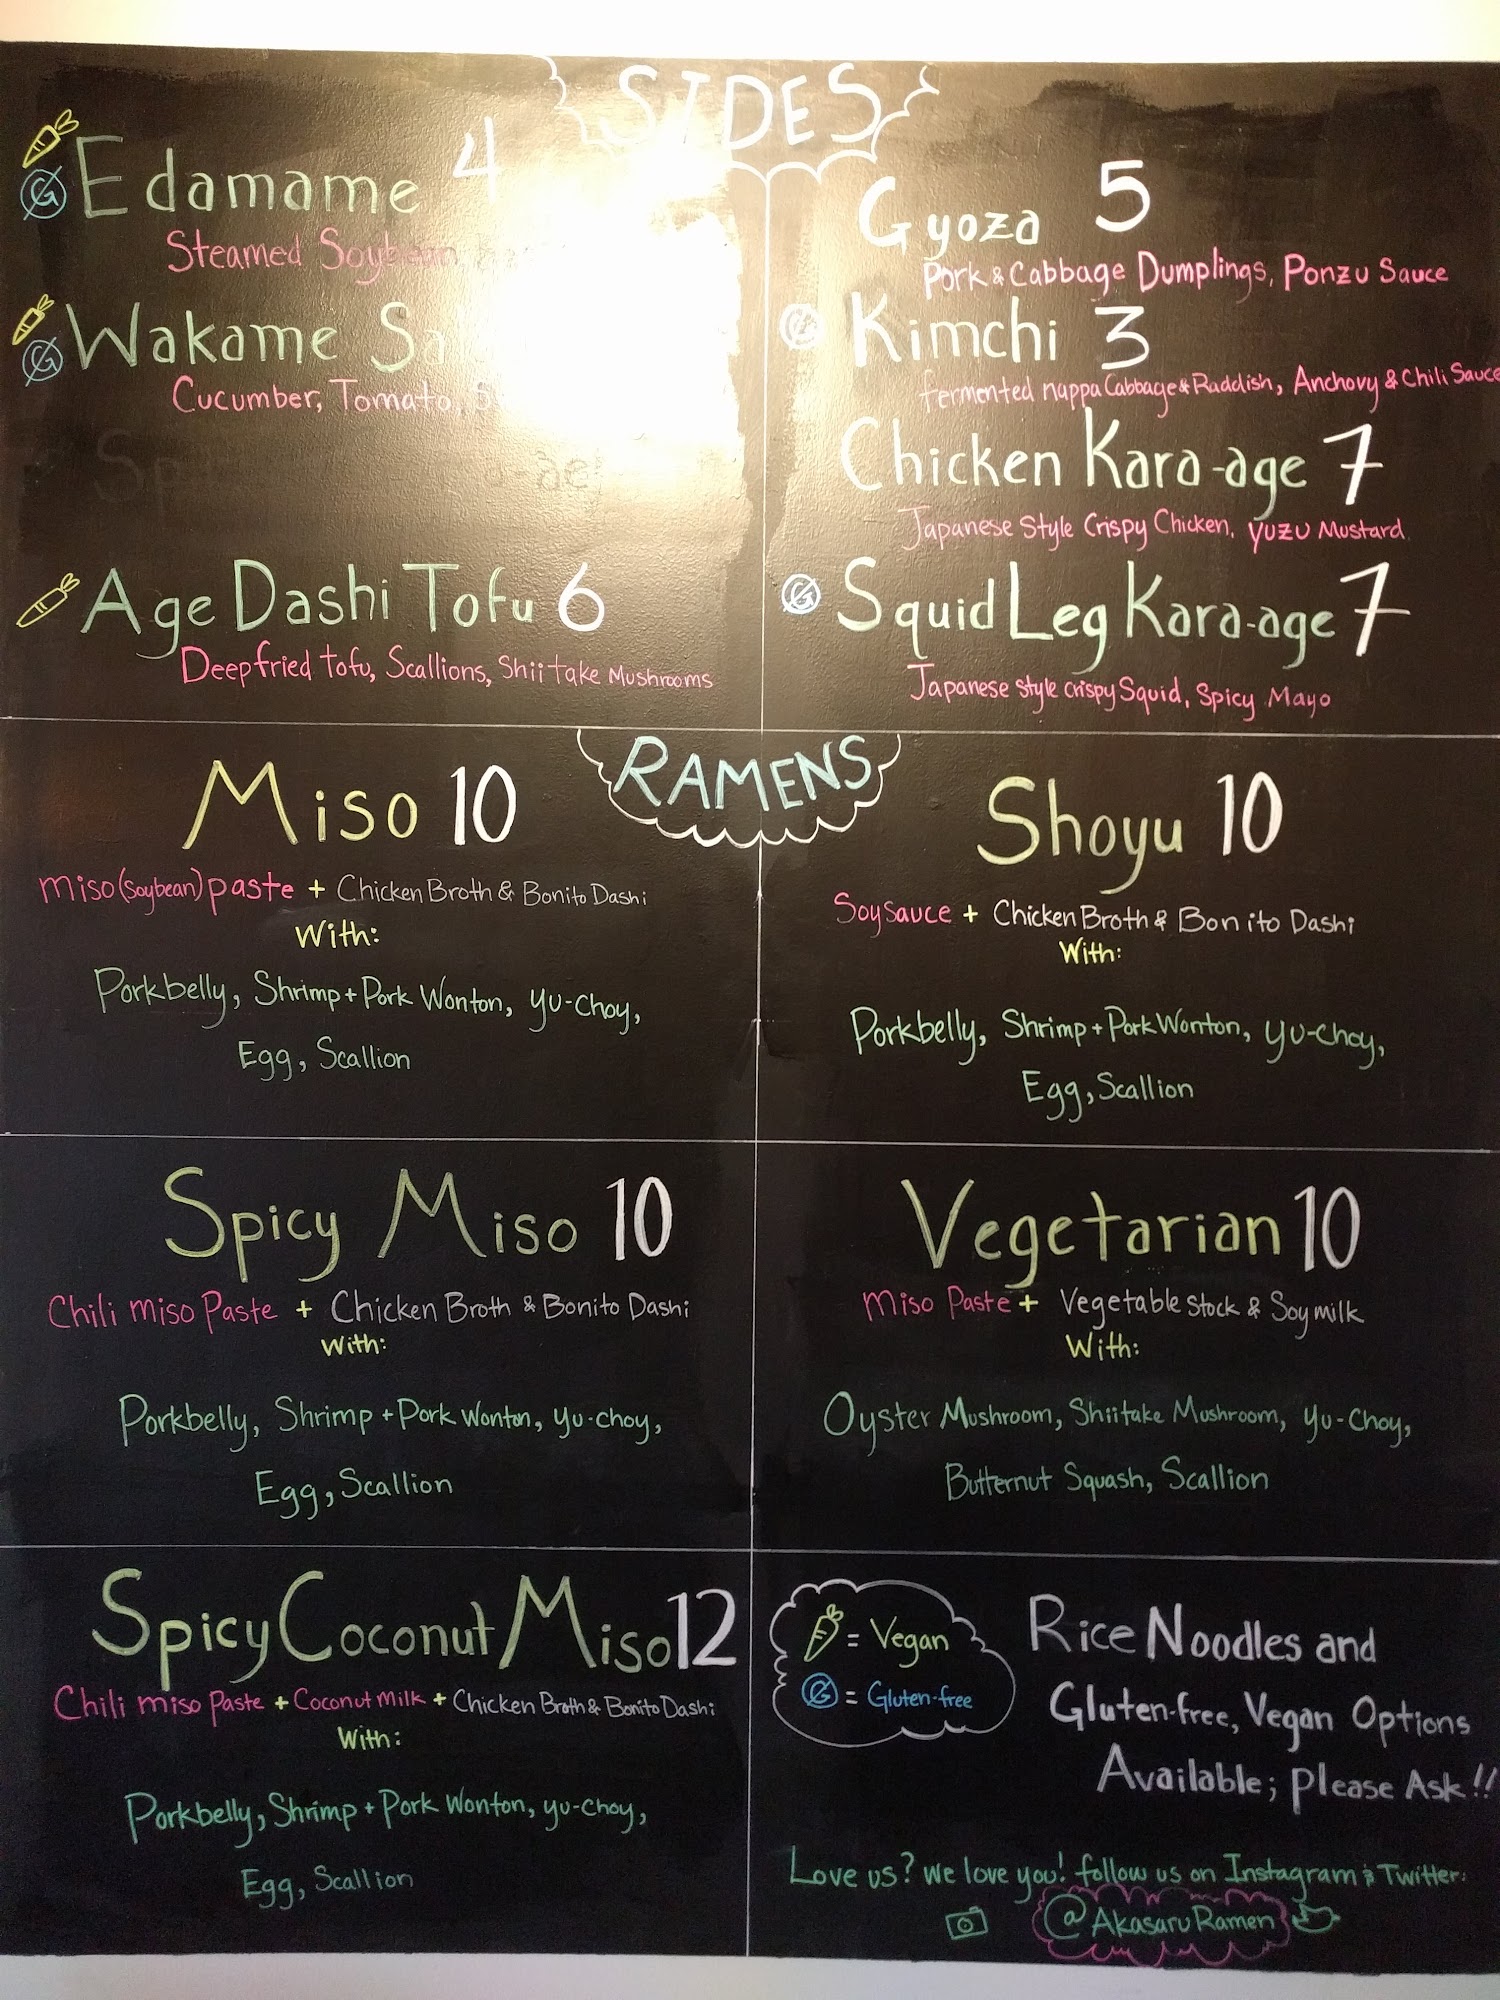 SIDES
Edamame 4
Steamed Soybean
Wakame
Cucumber, Tomato,
Age Dashi Tofu 6
Deepfried tofu, Scallions, Shiitake Mushrooms
Gyoza 5
Pork & Cabbage Dumplings, Ponzu Sauce
Kimchi 3
fermented nappa Cabbage & Raddish, Anchovy & Chili Sauce
Chicken Kara-age 7
Japanese Style Crispy Chicken, Yuzu Mustard
Squid Leg Kara-age 7
Japanese style crispy Squid, Spicy Mayo
RAMENS
Miso 10
miso (soybean) paste + Chicken Broth & Bonito Dashi
With:
Porkbelly, Shrimp + Pork Wonton, yu-choy,
Egg, Scallion
Shoyu 10
Soy sauce + Chicken Broth & Bonito Dashi
With:
Porkbelly, Shrimp + Pork Wonton, yu-choy,
Egg, Scallion
Spicy Miso 10
Chili miso Paste + Chicken Broth & Bonito Dashi
With:
Porkbelly, Shrimp + Pork Wonton, yu-choy,
Egg, Scallion
Vegetarian 10
miso Paste + Vegetable stock & Soy milk
With:
Oyster Mushroom, Shiitake Mushroom, yu-choy,
Butternut Squash, Scallion
Spicy Coconut Miso 12
Chili miso Paste + Coconut milk + Chicken Broth & Bonito Dashi
With:
Porkbelly, Shrimp + Pork Wonton, yu-choy,
Egg, Scallion
= Vegan
G = Gluten-free
Rice Noodles and
Gluten-free, Vegan Options
Available; Please Ask!!
Love us? we love you! follow us on Instagram & Twitter:
@AkasaruRamen